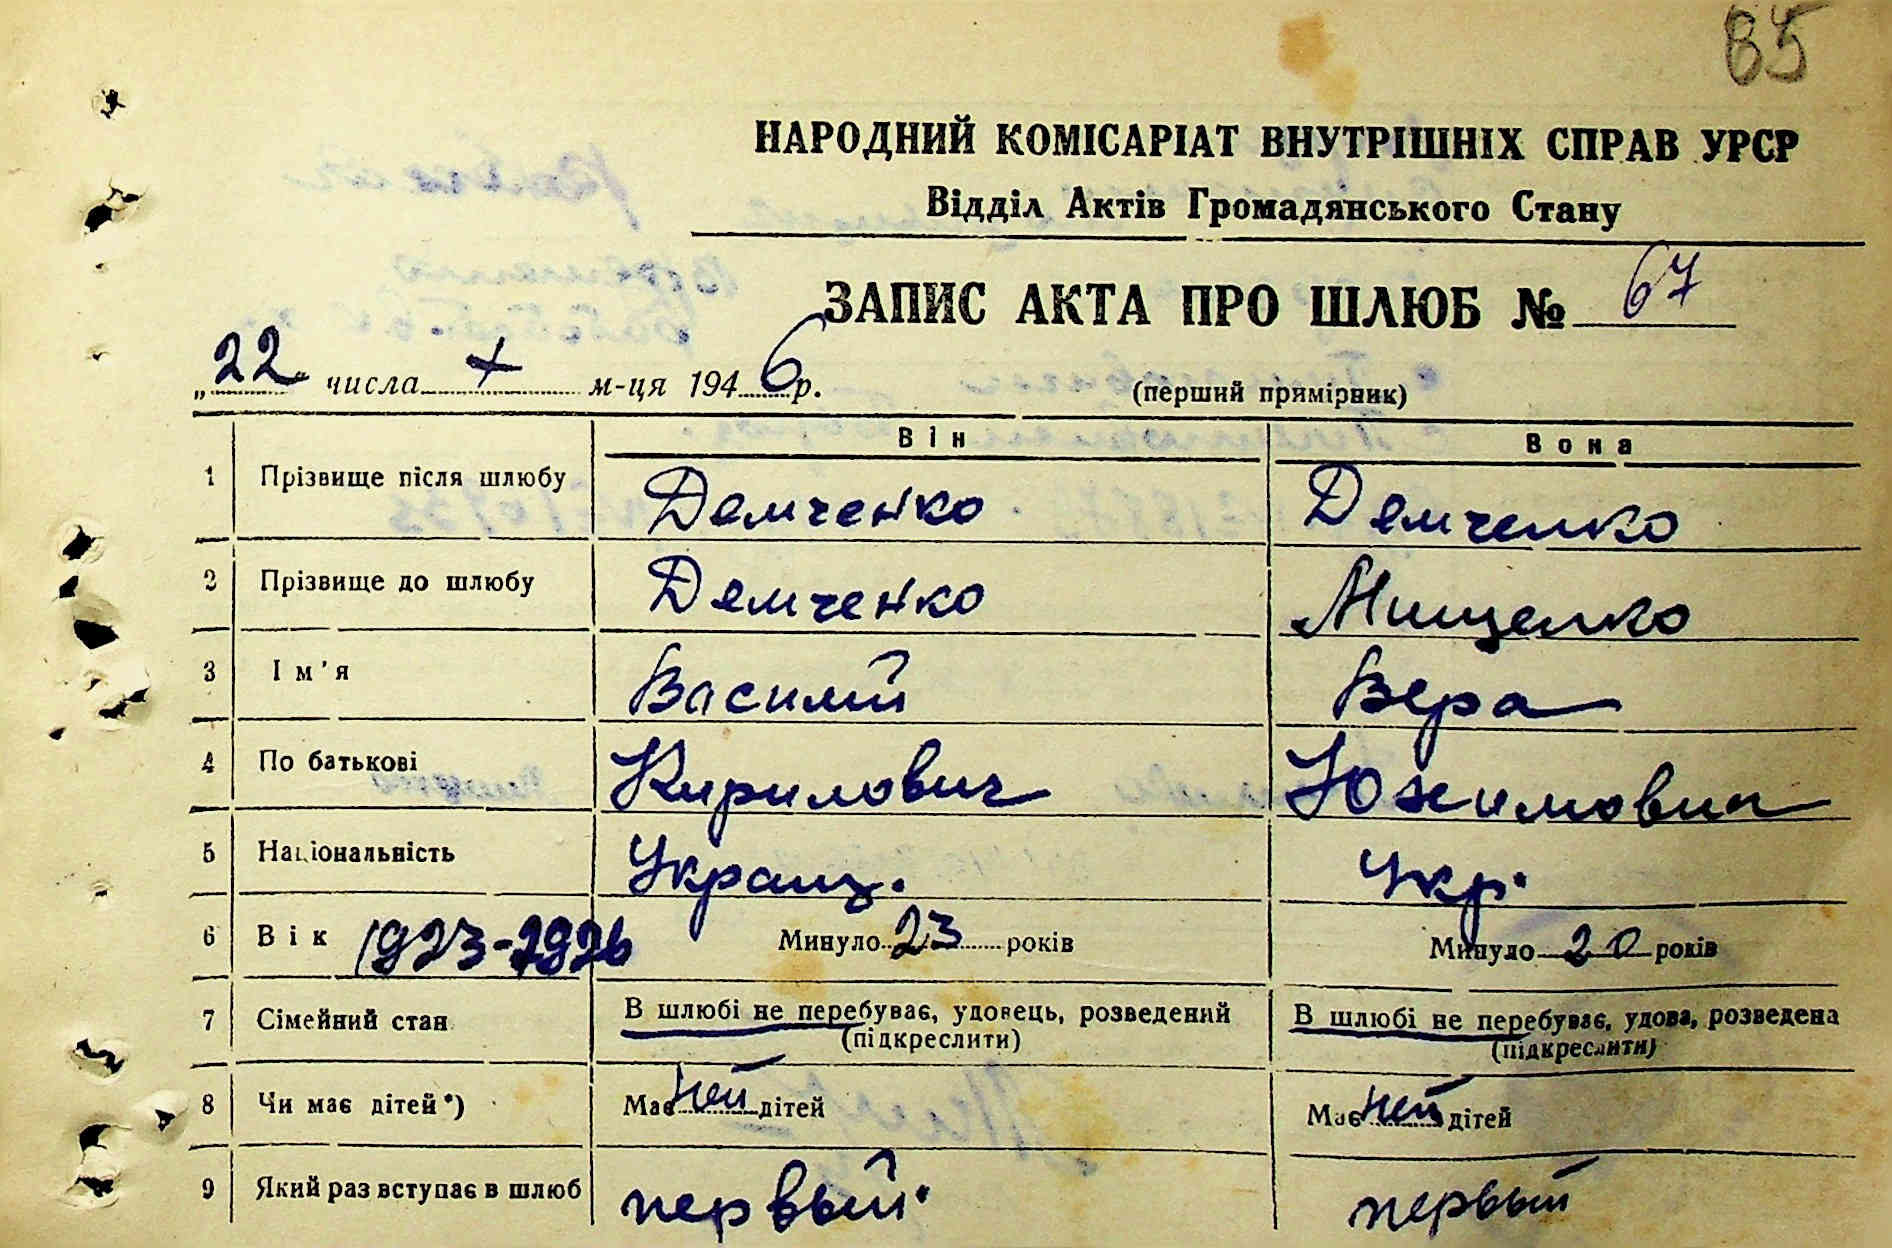 85
НАРОДНИЙ КОМІСАРІАТ ВНУТРІШНІХ СПРАВ УРСР
Відділ Актів Громадянського Стану
ЗАПИС АКТА ПРО ШЛЮБ № 67
„22" числа X м-ця 1946 р. (перший прямірник)
Він Вона
1 Прізвище після шлюбу Демченко Демченко
2 Прізвище до шлюбу Демченко Мищенко
3 Ім'я Василий Вера
4 По батькові Кирилович
5 Національність Украинц. Укр.
6 Вік 1923-1926 Минуло 23 років Минуло 20 років
7 Сімейний стан В шлюбі не перебуває, удовець, розведений (підкреслити) В шлюбі не перебуває, удова, розведена (підкреслити)
8 Чи має дітей*) Має дітей Має дітей
9 Який раз вступає в шлюб первый. первый